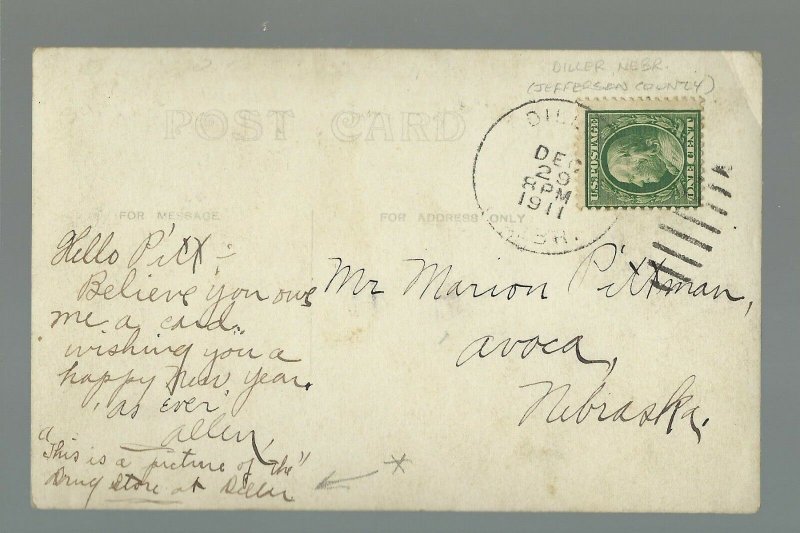 DILLER NEBR.
(JEFFERSON COUNTY)
POST CARD
DILL
DEC
29
8 PM
1911
NEBR.
U.S. POSTAGE
ONE CENT
FOR MESSAGE
FOR ADDRESS ONLY
Hello Pitt :-
Believe you owe
me a card.
wishing you a
happy New Year.
as ever,
Allen,
"This is a picture of the"
Drug Store at Diller
*
Mr Marion Pittman,
Avoca,
Nebraska,